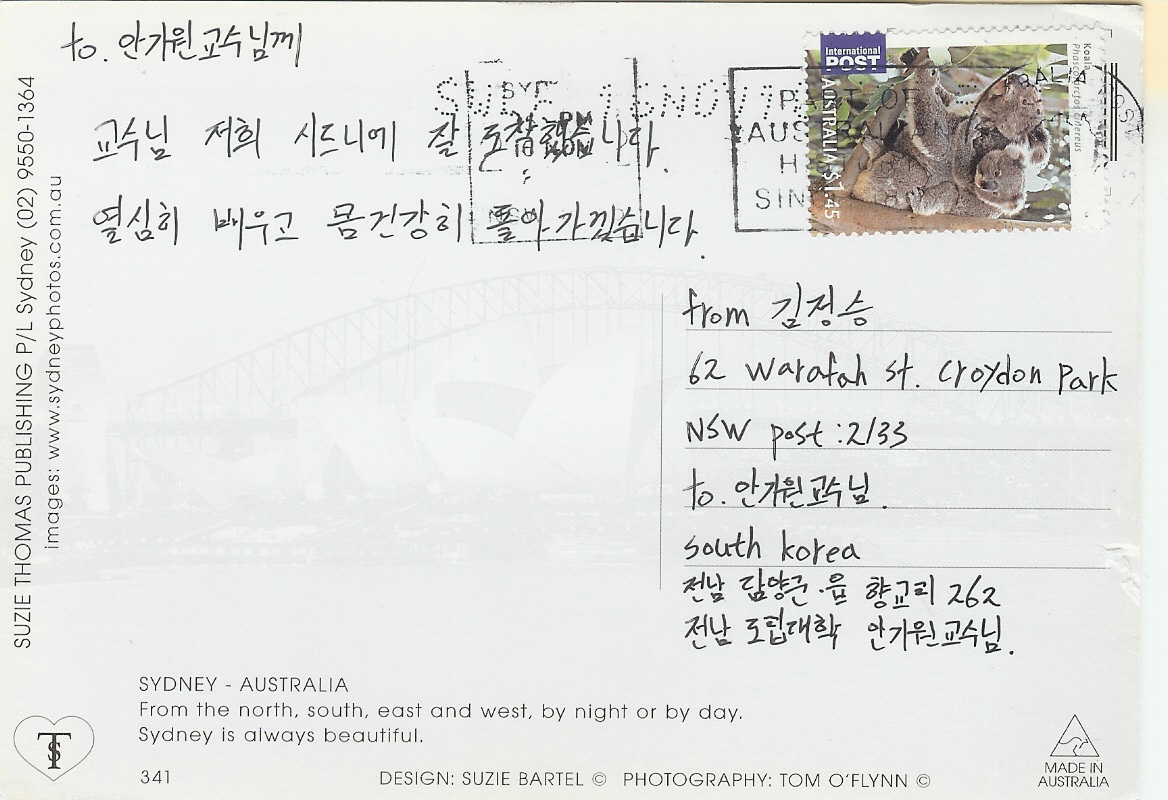 to. 안가원교수님께
교수님 저희 시드니에 잘 도착했습니다.
열심히 배우고 몸건강히 돌아가겠습니다.
International
POST
AUSTRALIA $1.45
Koala
16NOV1
PM
NSW
from 김정승
62 Warafah st. Croydon Park
NSW post:2133
to. 안가원교수님.
south korea
전남 담양군·읍 향교리 262
전남 도립대학 안가원교수님.
SUZIE THOMAS PUBLISHING P/L Sydney (02) 9550-1364
images: www.sydneyphotos.com.au
SYDNEY - AUSTRALIA
From the north, south, east and west, by night or by day.
Sydney is always beautiful.
341
DESIGN: SUZIE BARTEL © PHOTOGRAPHY: TOM O'FLYNN ©
MADE IN
AUSTRALIA